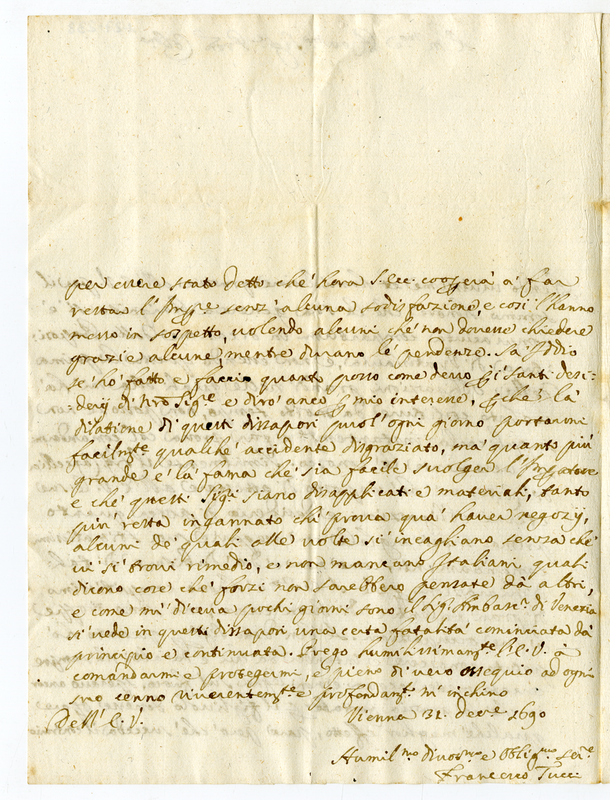 per essere stato detto che hora S. Ecc. cooperà à far
restar l'Imp.re senz'alcuna sodisfazione, e così l'hanno
messo in sospetto, volendo alcuni che non dovesse chiedere
grazie alcune, mentre durano le pendenze. Sà Iddio
se hò fatto, e faccio quanto posso come devo p i santi desi-
derij di Nro Sig.e e dirò anco p mio interesse, pche la
dilatione di questi dissapori puol'ogni giorno portarmi
facilm.te qualche accidente disgraziato, mà quanto più
grande è la fama che sia facile svolger l'Imperatore
e che questi Sig.i siano disapplicati e materiali, tanto
più resta ingannato chi prova quà haver negozij,
alcuni de quali alle volte si incagliano senza che
vi si trovi rimedio, e non mancano Italiani quali
dicono cose che forsi non sarebbero pensate da altri,
e come mi diceva pochi giorni sono il Sig.r Ambasc.r di Venezia
si vede in questi dissapori una certa fatalità cominciata dà
principio e continuata. Prego humilissimam.te à
comandarmi e protegermi, e pieno di vero ossequio ad ogni
suo cenno riverentem.te e profondam.te m'inchino
Dell' E. V. Vienna 31. Dec.e 1690
Humil.mo divot.mo e Oblig.mo ser.e
Francesco Tucci